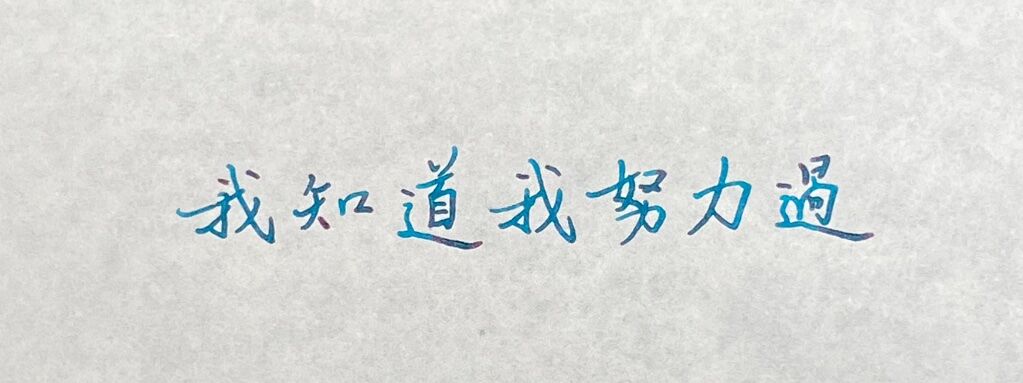 我知道我努力過